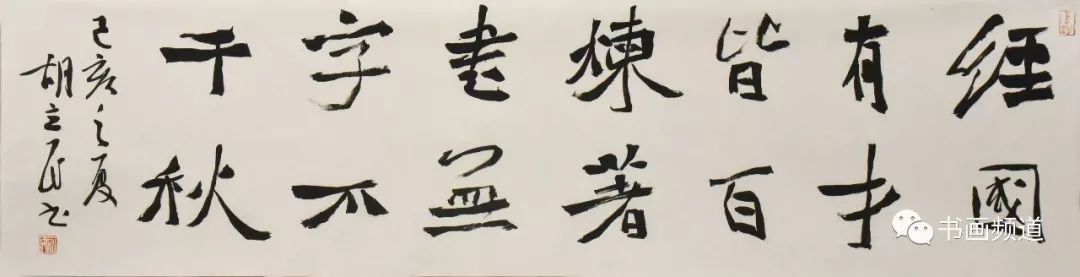 經國
有才
皆百
煉著
書無
字不
千秋
己亥之夏
胡立民书
书画频道